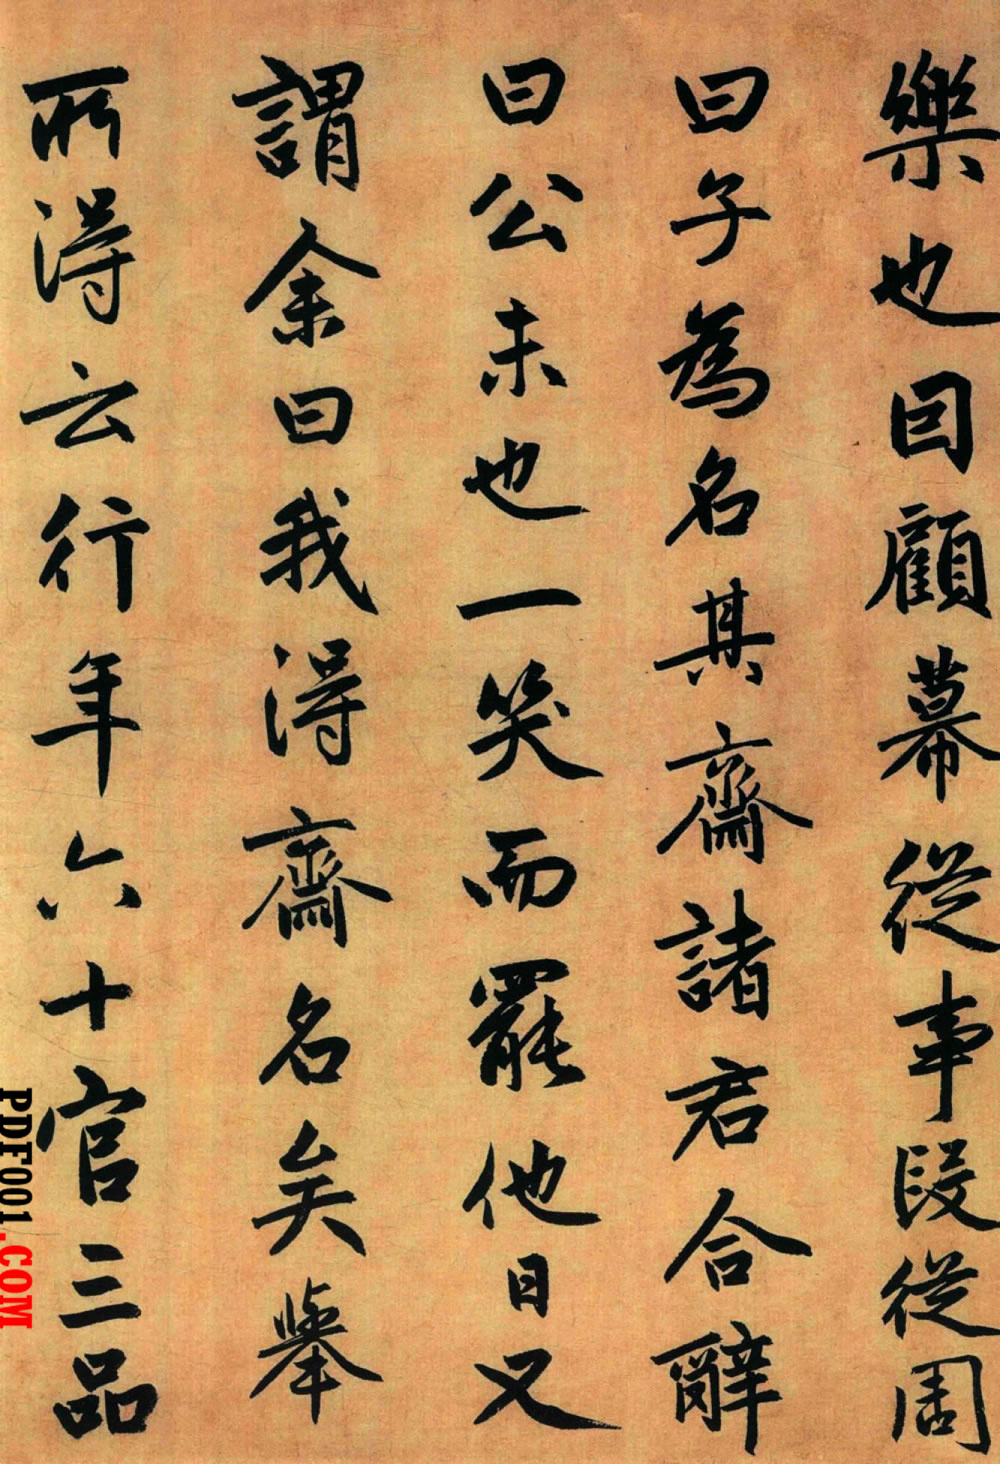 樂也回顧幕從事段從周
曰子為名其齋諸君合辭
曰公未也一笑而罷他日又
謂余曰我得齋名矣舉
所得云行年六十官三品
PDF001.COM